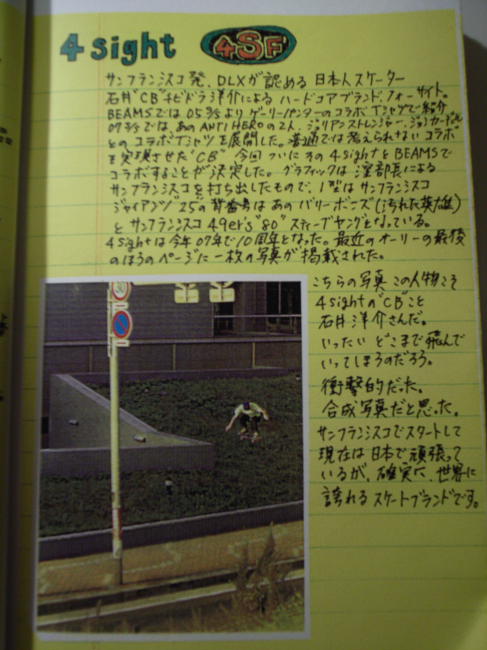 4 sight 4SF
サンフランシスコ発、DLXが認める日本人スケーター
石井"CB"チビドラ洋介によるハードコアブランド、フォーサイト。
BEAMSでは05S/SよりゲーリーパンターのコラボTシャツで紹介
07S/Sでは、あのANTI HEROの2人、ジュリアンストレンジャー、ジョンカーディエル
とのコラボTシャツを展開した。普通では考えられないコラボ
を実現させた"CB" 今回ついにその4sightとBEAMSで
コラボすることが決定した。グラフィックは窪部長による
サンフランシスコを打ち出したもので、1型はサンフランシスコ
ジャイアンツ"25"の背番号はあのバリーボンズ(汚れた英雄)
とサンフランシスコ49er's"80"スティーブヤングとなっている。
4sightは今年07年で10周年となった。最近のオーリーの最後
のほうのページに一枚の写真が掲載された。
こちらの写真 この人物こそ
4sightの"CB"こと
石井洋介さんだ。
いったいどこまで飛んで
いってしまうのだろう。
衝撃的だった。
合成写真だと思った。
サンフランシスコでスタートして
現在は日本で頑張って
いるが、確実に、世界に
誇れるスケートブランドです。